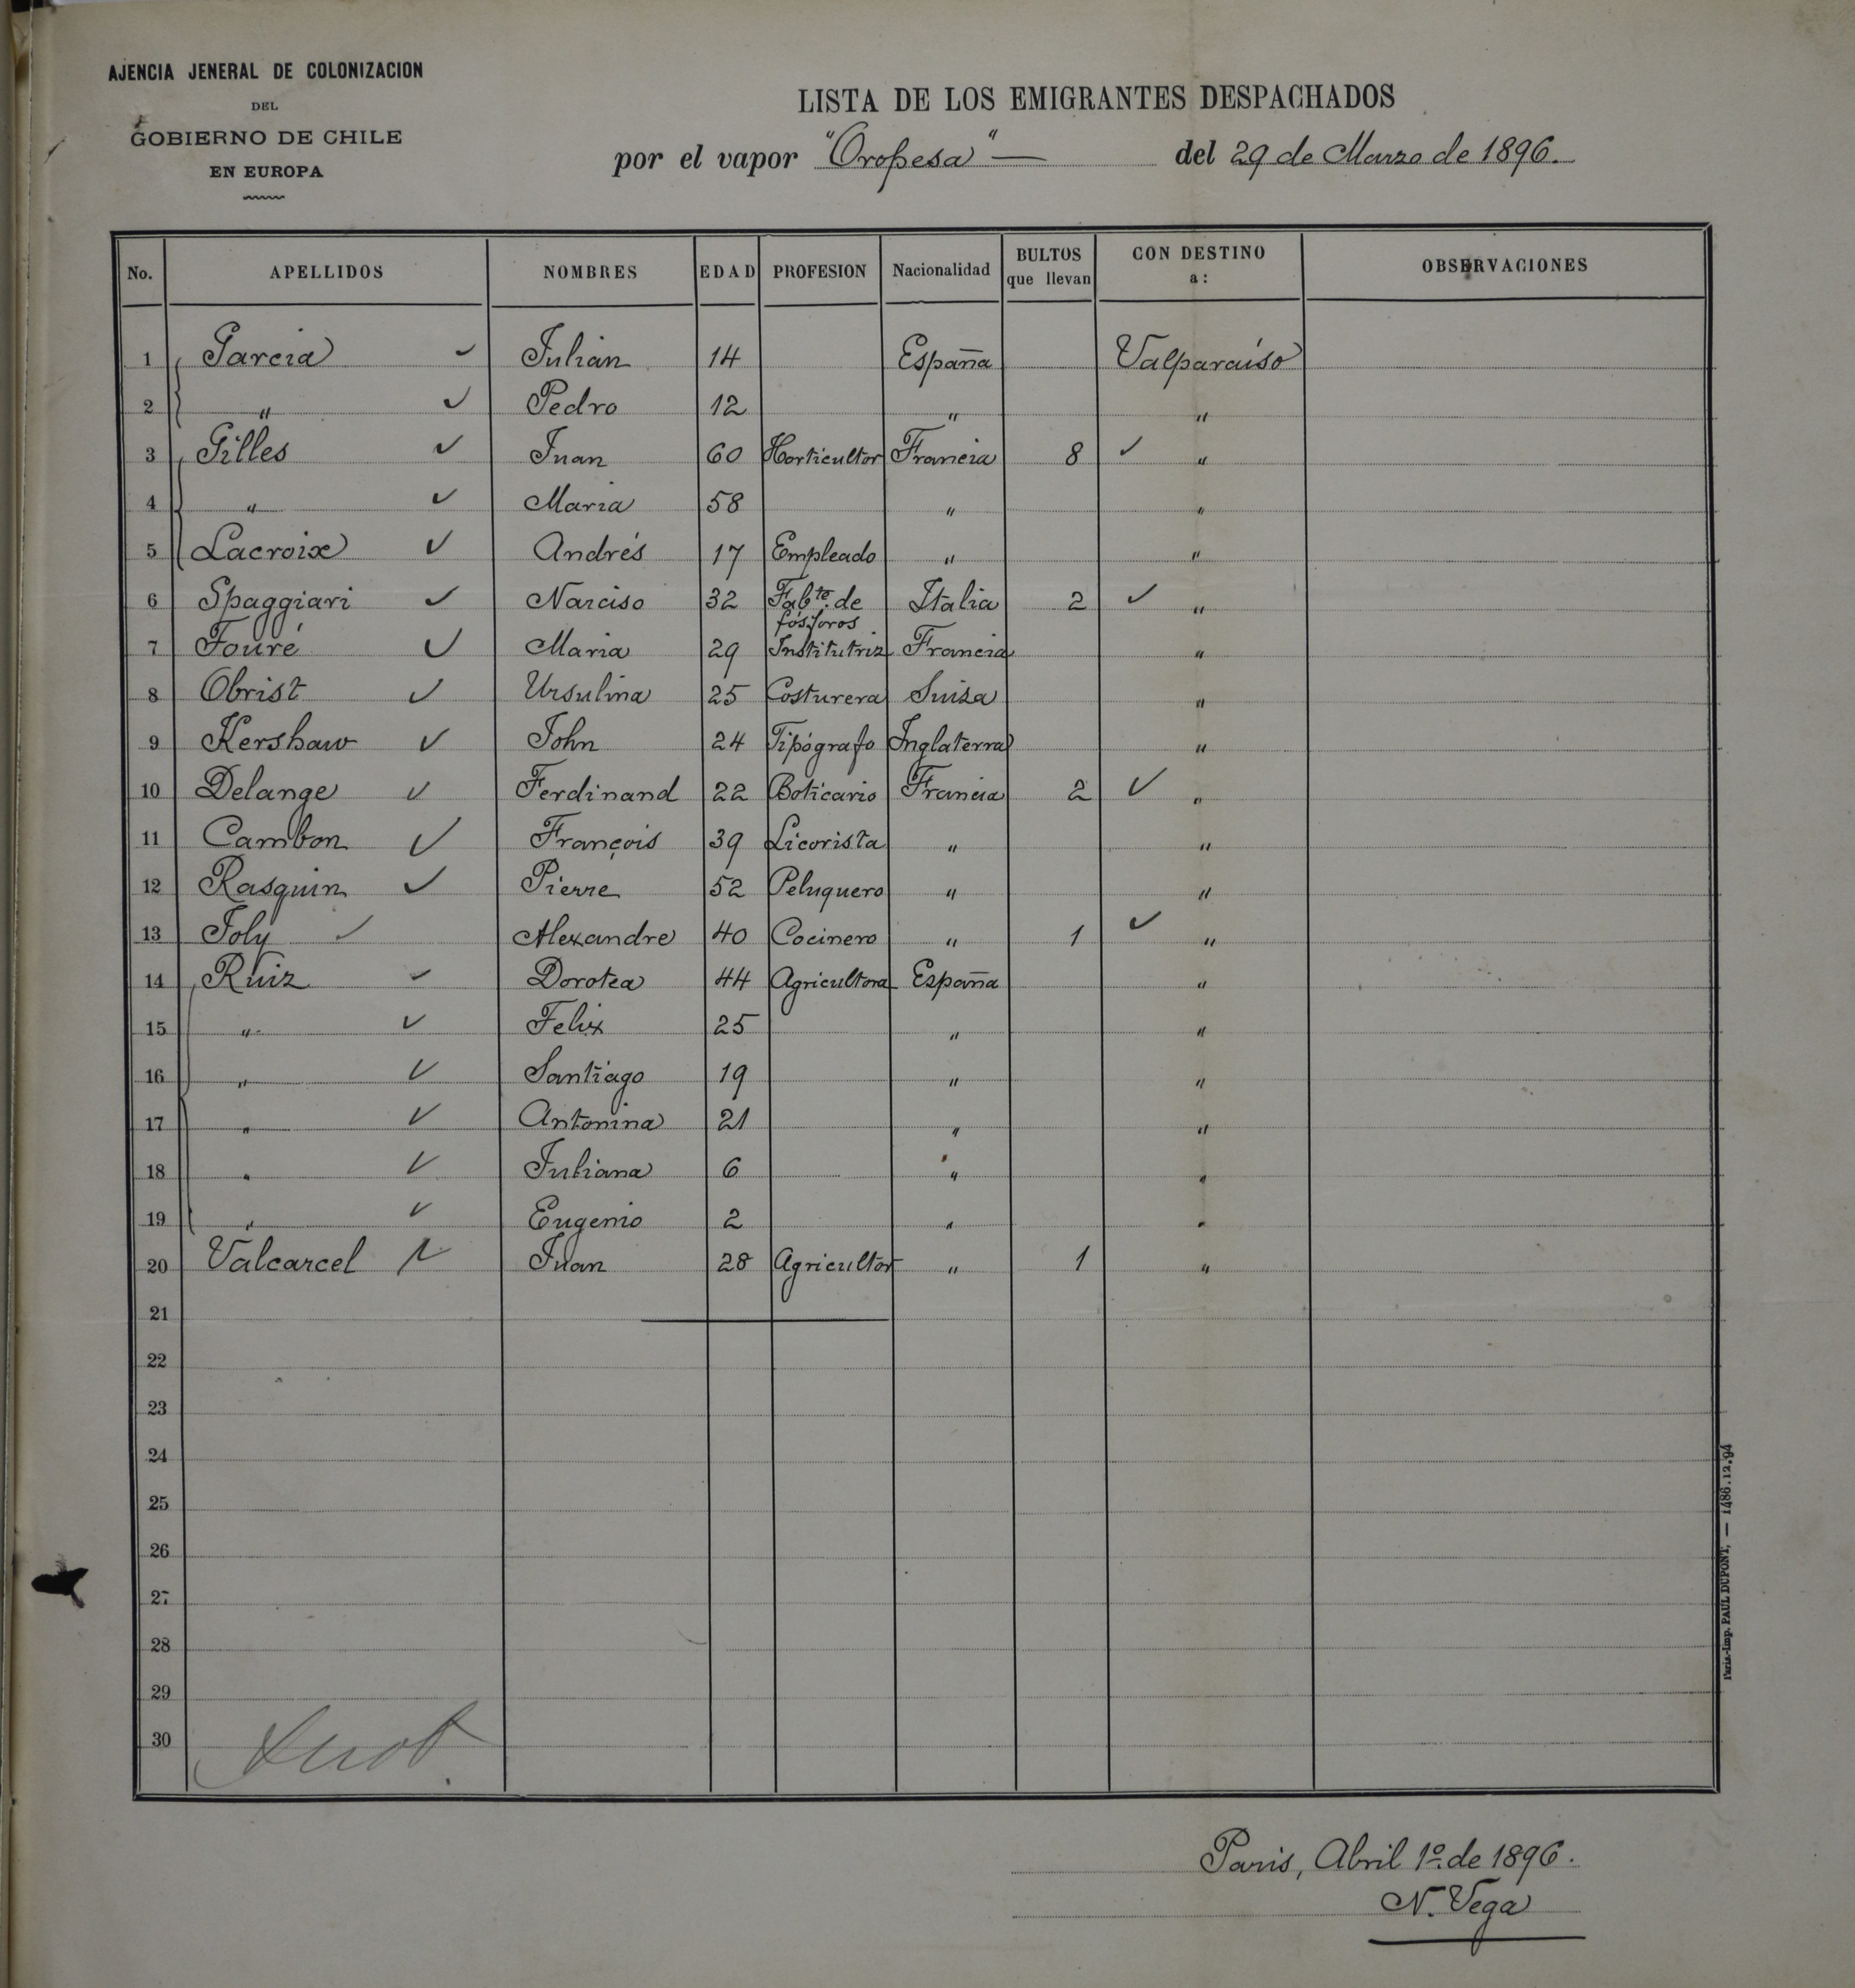 AJENCIA JENERAL DE COLONIZACION
DEL
GOBIERNO DE CHILE
EN EUROPA
LISTA DE LOS EMIGRANTES DESPACHADOS
por el vapor "Oropesa" — del 29 de Marzo de 1896.
No. APELLIDOS NOMBRES EDAD PROFESION Nacionalidad BULTOS que llevan CON DESTINO a: OBSERVACIONES
1 Garcia ✓ Julián 14 España Valparaíso
2 " ✓ Pedro 12 " "
3 Gilles ✓ Juan 60 Horticultor Francia 8 ✓ "
4 " ✓ Maria 58 " "
5 Lacroix ✓ Andrés 17 Empleado " "
6 Spaggiari ✓ Narciso 32 Fabte. de fósforos Italia 2 ✓ "
7 Fouré ✓ Maria 29 Institutriz Francia "
8 Obrist ✓ Ursulina 25 Costurera Suiza "
9 Kershaw ✓ John 24 Tipógrafo Inglaterra "
10 Delange ✓ Ferdinand 22 Boticario Francia 2 ✓ "
11 Cambon ✓ François 39 Licorista " "
12 Rasquin ✓ Pierre 52 Peluquero " "
13 Joly ✓ Alexandre 40 Cocinero " 1 ✓ "
14 Ruiz ✓ Dorotea 44 Agricultora España "
15 " ✓ Felix 25 " "
16 " ✓ Santiago 19 " "
17 " ✓ Antonina 21 " "
18 " ✓ Juliana 6 " "
19 " ✓ Eugenio 2 " "
20 Valcarcel Juan 28 Agricultor " 1 "
21
22
23
24
25
26
27
28
29
30
Paris, Abril 1º. de 1896.
N. Vega
Paris.-Imp. PAUL DUPONT. — 1486.12.94